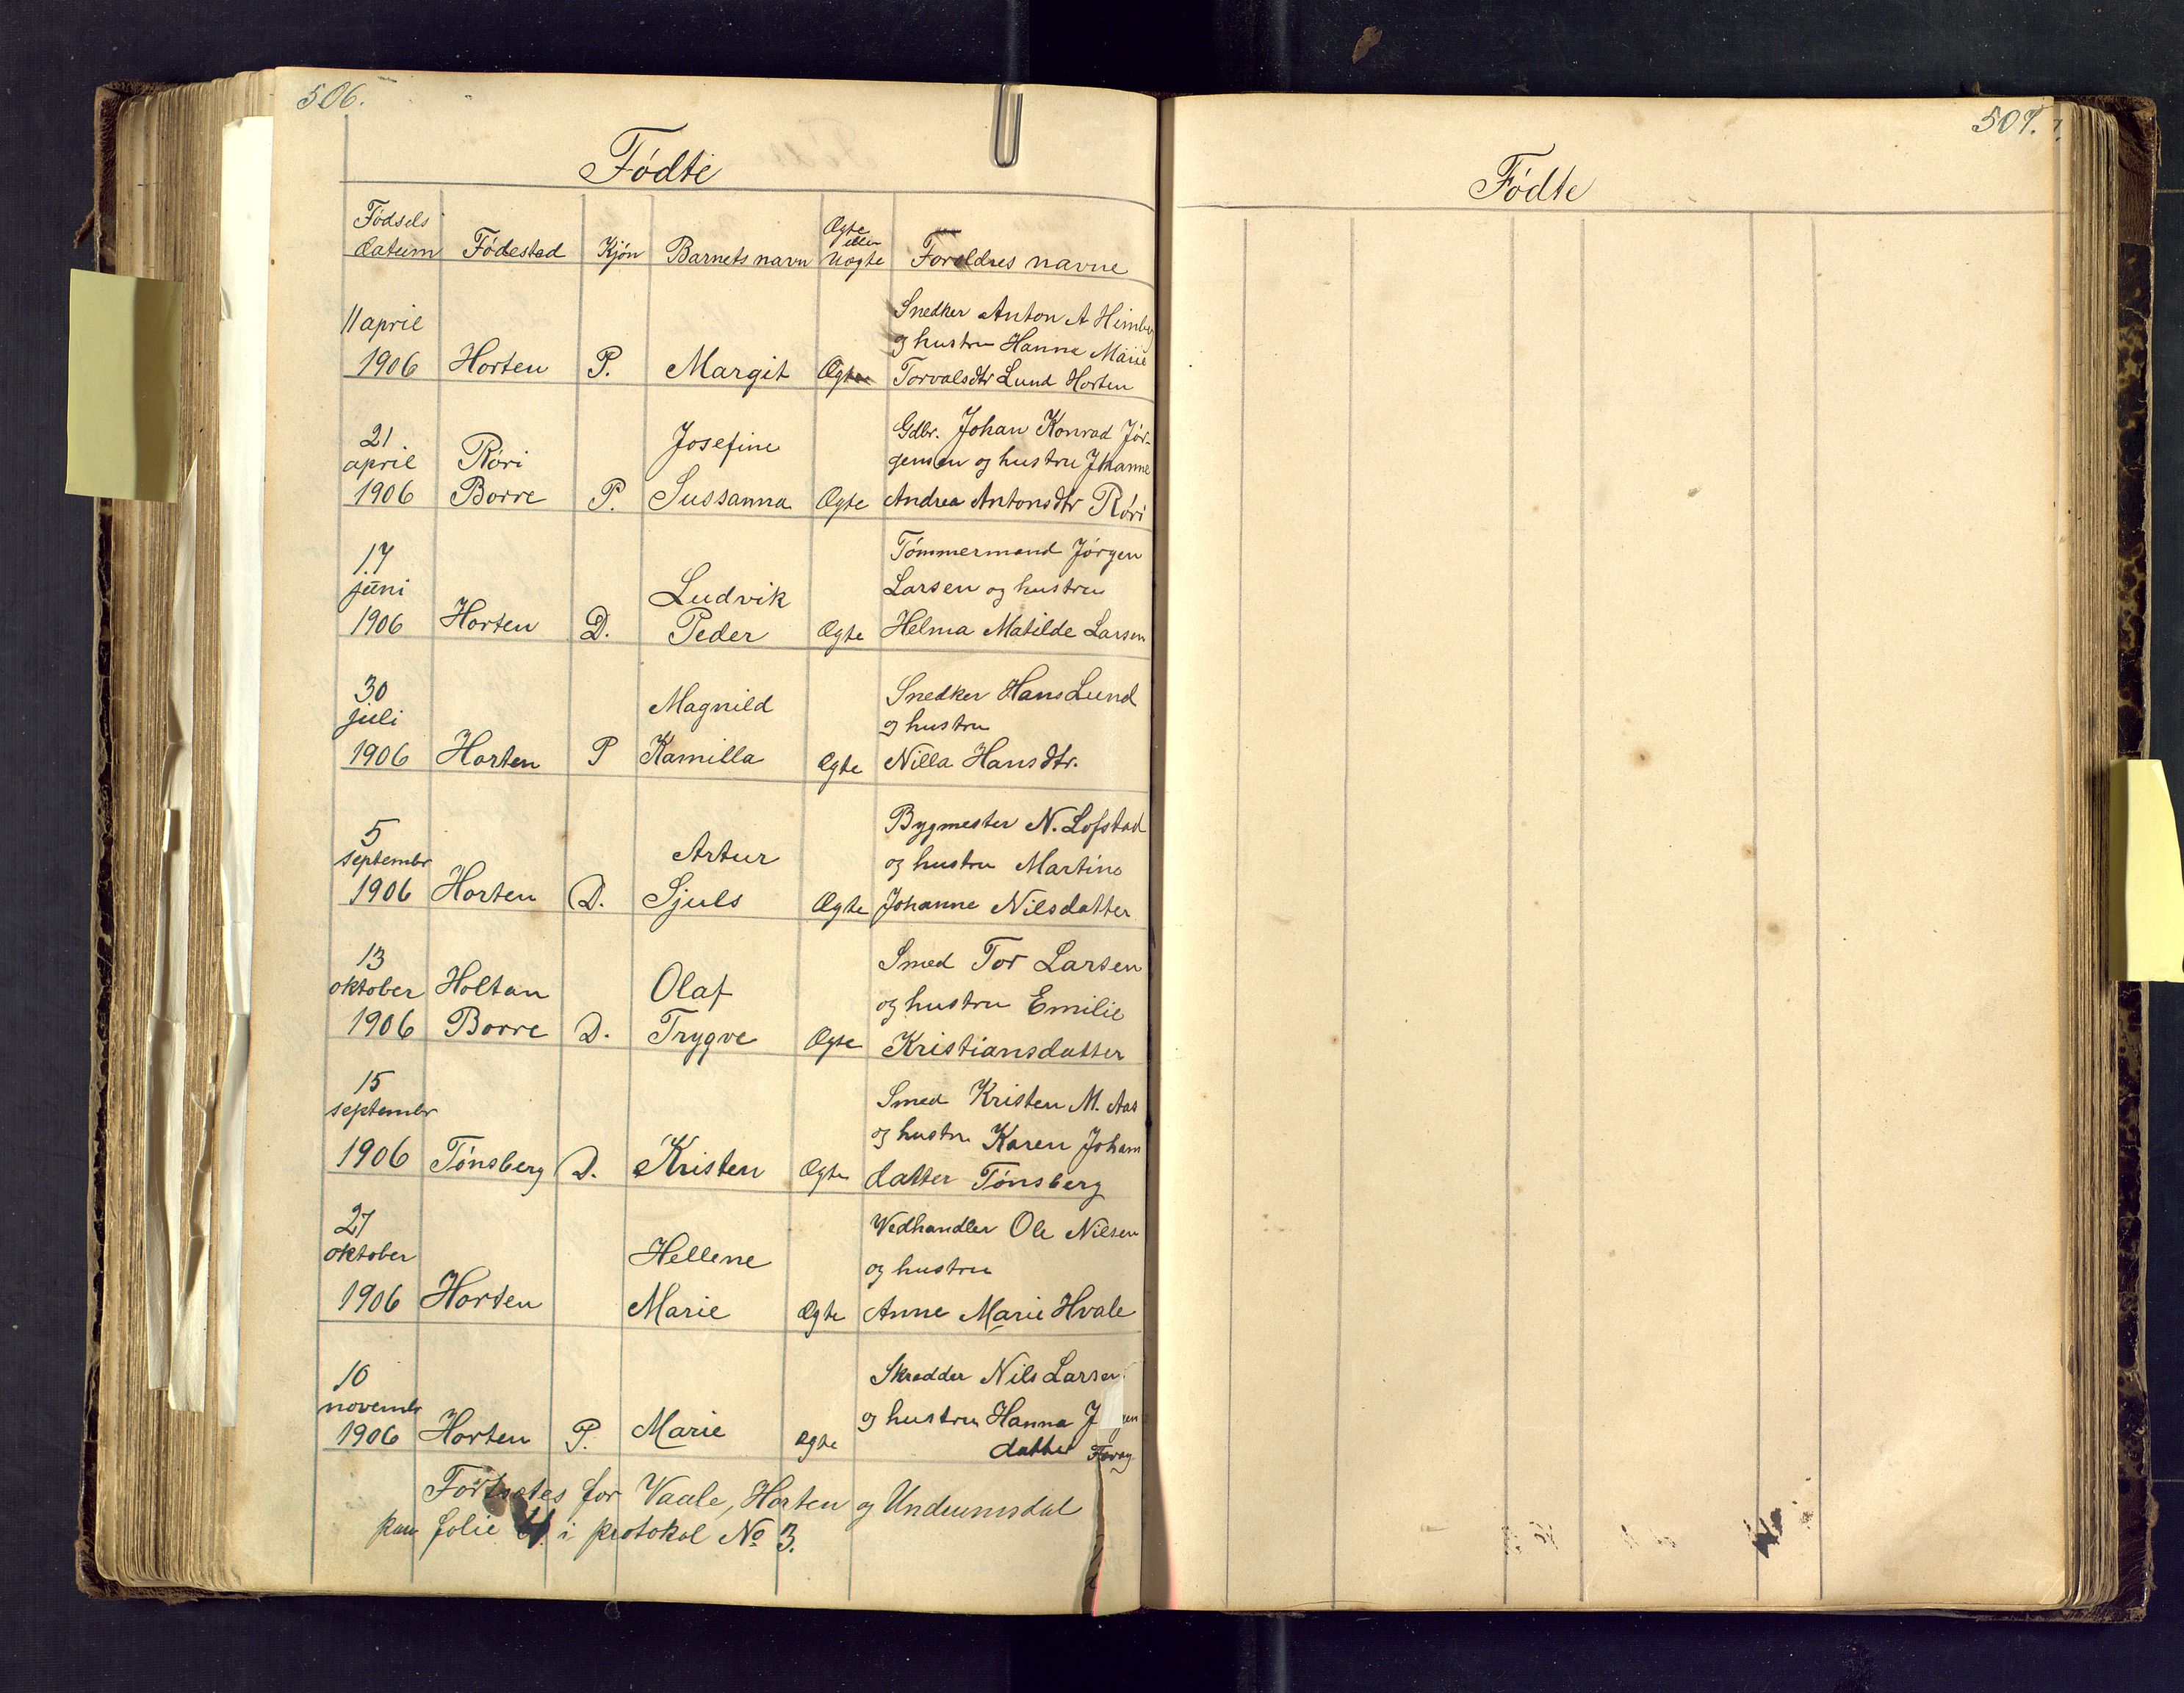 506.
Födte
Födsels
datum Födestad Kjön Barnets navn Ægte eller Uægte Forældres navne
11 april
1906 Horten P. Margit Ægte
Snedker Anton A
og hustru Hanna Marie
Torvalsdtr Lund Horten
21
april
1906
Röri
Borre P.
Josefine
Sussanna Ægte
Gdbr. Johan Konrad Jör-
gensen og hustru Jhanne
Andrea Antonsdtr Röri
17
juni
1906 Horten D.
Ludvik
Peder Ægte
Tömmermand Jörgen
Larsen og hustru
Helma Matilde Larsen
30
juli
1906 Horten P
Magnild
Kamilla Ægte
Snedker Hans Lund
og hustru
Nilla Hansdtr.
5
septembr
1906 Horten D.
Artur
Sjuls Ægte
Bygmester N. Lofstad
og hustru Martine
Johanne Nilsdatter
13
oktober
1906
Holtan
Borre D.
Olaf
Trygve Ægte
Smed Tor Larsen
og hustru Emilie
Kristiansdatter
15
septembr
1906 Tönsberg D. Kristen Ægte
Smed Kristen M. Aas
og hustru Karen Johan
datter Tönsberg
27
oktober
1906 Horten
Hellene
Marie Ægte
Vedhandler Ole Nilsen
og hustru
Anne Marie Hvale
10
novembr
1906 Horten P. Marie ægte
Skrædder Nils Larsen
og hustru Hanna
datter
Fortsætes for Vaale, Horten og Undrumsdal
paa folie i protokol No 3.
507.
Födte